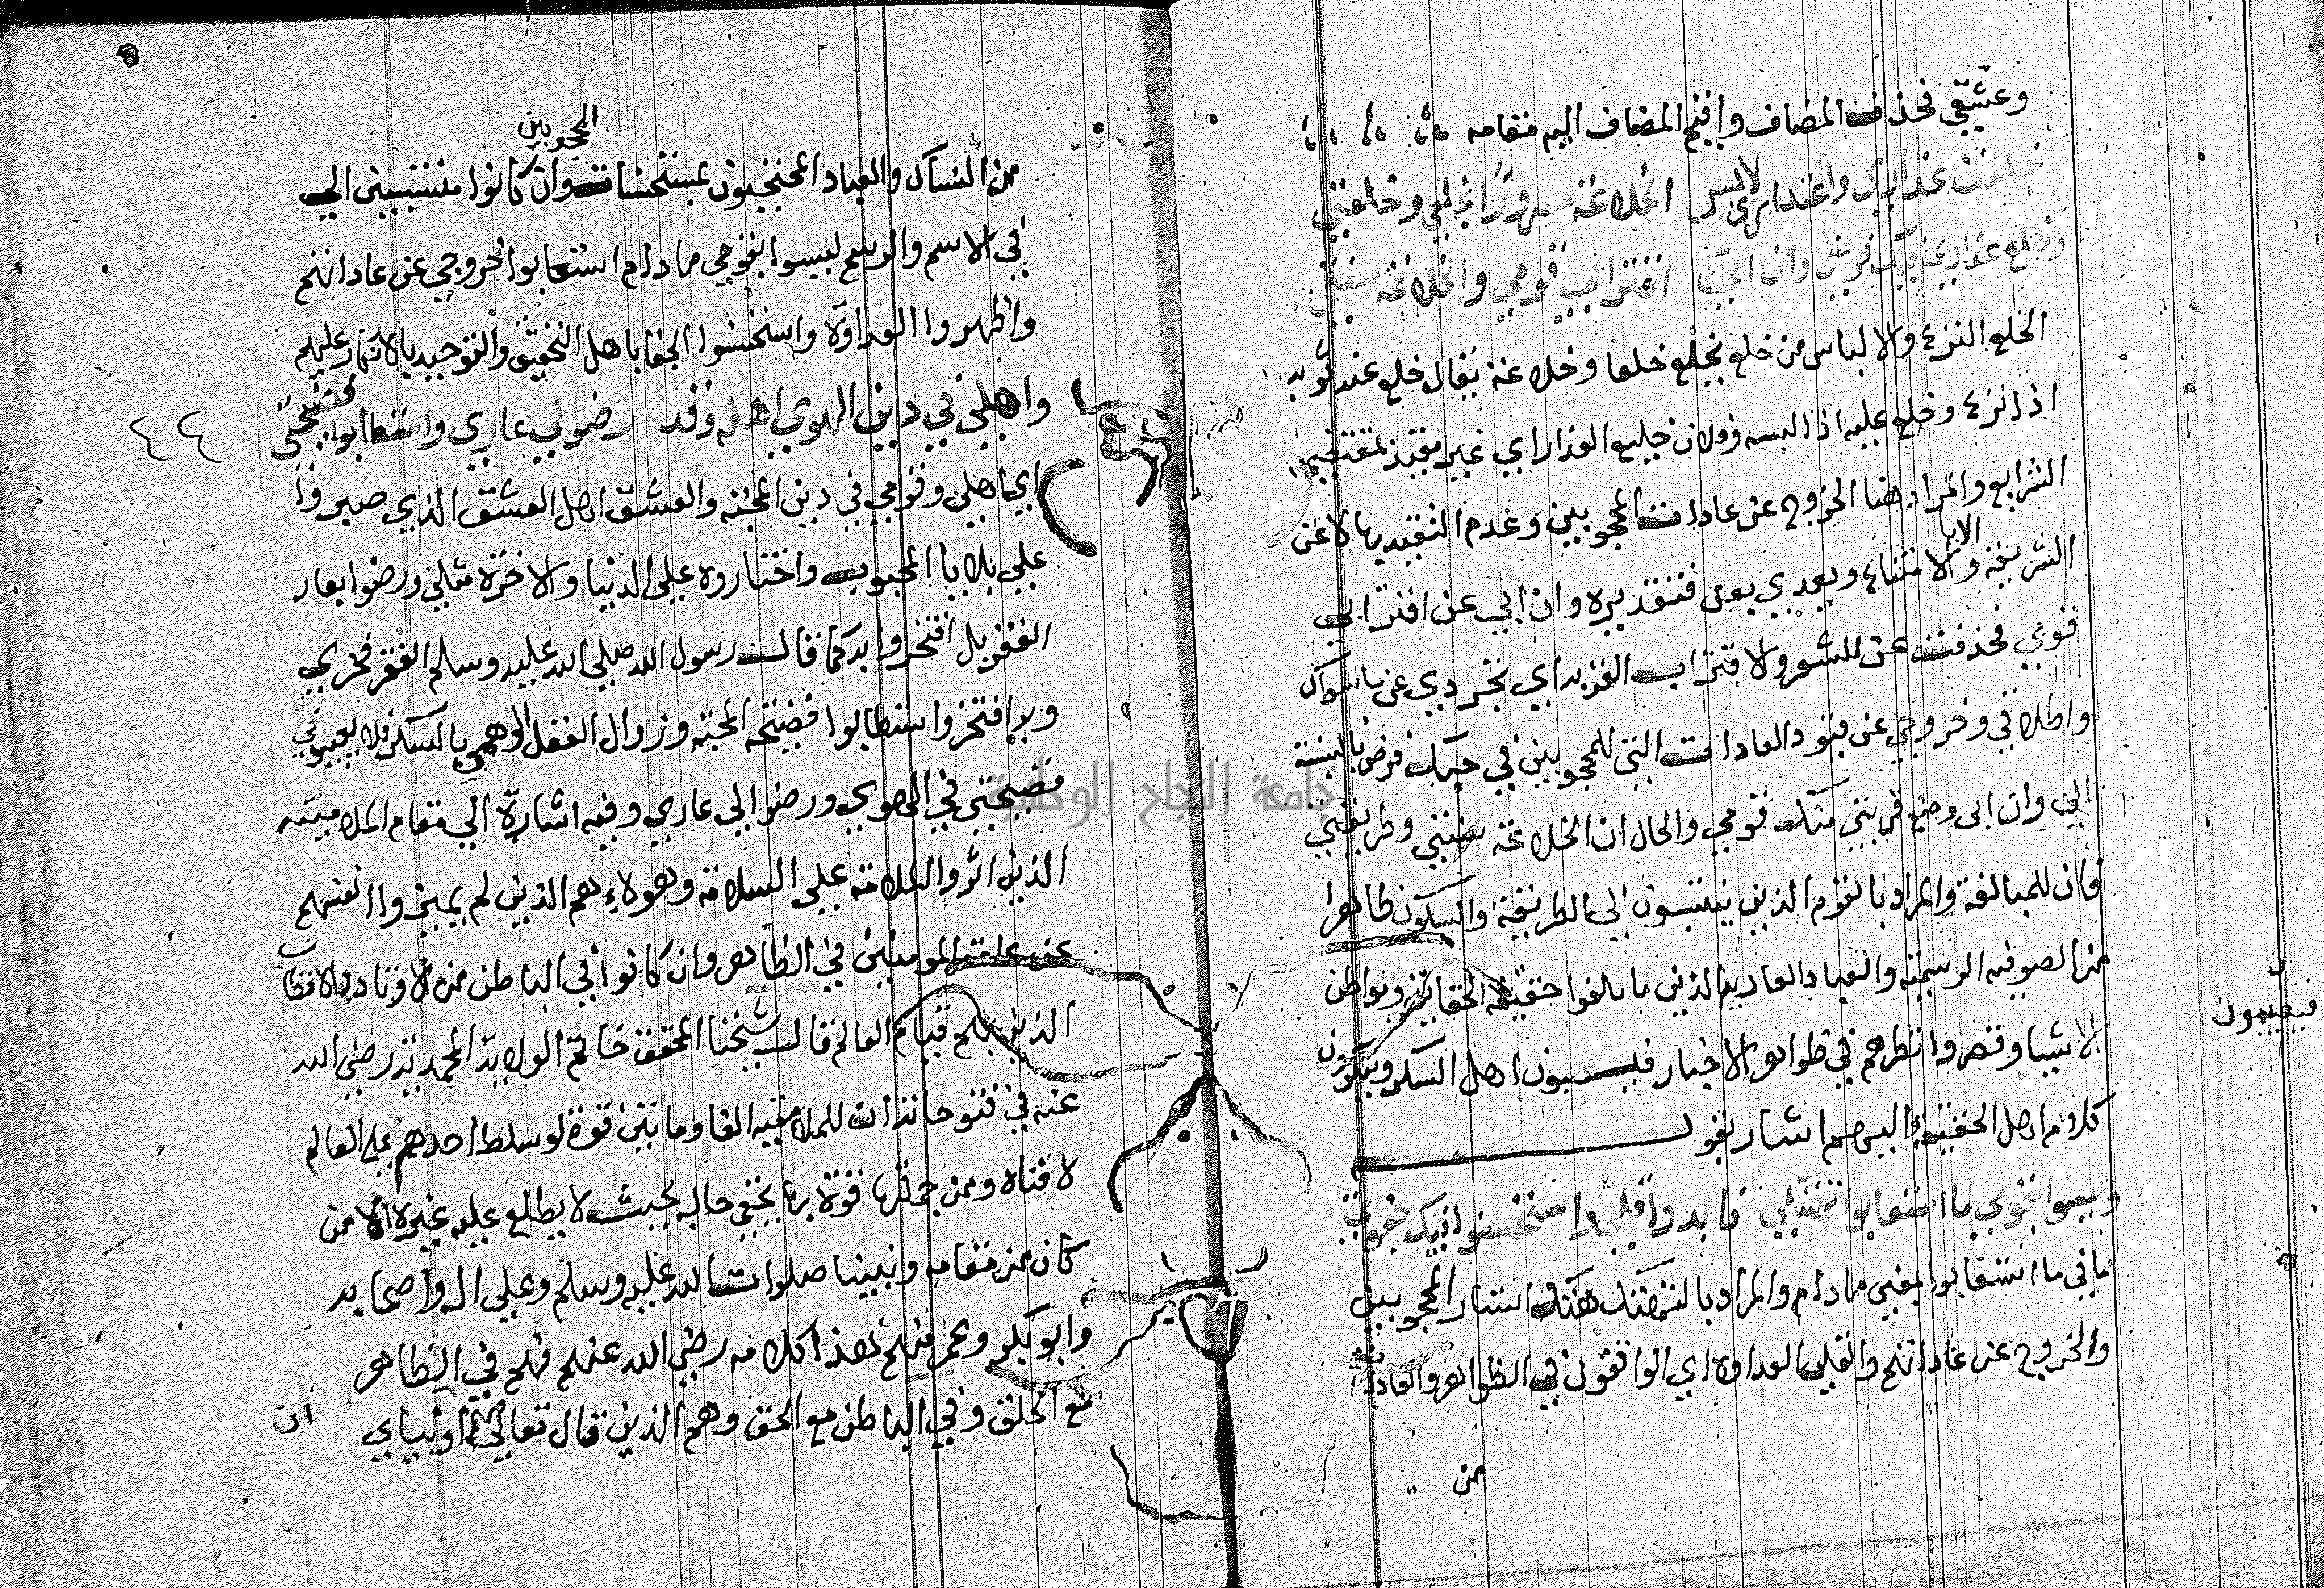 وعشقي فحذف المضاف واقيم المضاف اليه مقامه
خلعت عذاري واعتذاري لابس الخلاعة مسرورا بخلعي وخلعتي
وخلع عذاري فيك فرضي وان ابى اقترابي قومي والخلاعة سنتي
الخلع النزع والالباس من خلع يخلع خلعا وخلاعة يقال خلع عنه ثوبه
اذا نزع وخلع عليه اذا لبسه وفلان خليع العذار اي غير مقيد بمقتضي
الشرايع والمراد هنا الخروج عن عادات المحجوبين وعدم التقيد بها لا عن
الشريعة والابا الامتناع ويعدي بعن فتقديره وان ابي عن اقترابي
قومي فحذفت عن للشعر والاقتراب القربه اي تجردي عن ما سواك
واطلاقي وخروجي عن قيود العادات التي للمحجوبين في حبك فرض بالنسبة
الي وان ابى وضع قربتي منك قومي والحال ان الخلاعة سنتي وطريقتي
فان للمبالغة والمراد بالقوم الذين ينتسبون الي الطريقة والسكون ظاهرا
من الصوفيه الرسمية والعباد العادية الذين ما بلغوا حقيقة الحقايق وبواطن
الاشيا وقصروا نظرهم في ظواهر الاخبار فيسبون اهل السكر وينكرون
فيعيبون
كلام اهل الحقيقة اليهم اشار بقوله
وليسوا بقومي ما استعابوا تهتكي فابدوا قلى واستحسنوا فيك جفوتي
ما في ما استعابوا بمعني مادام والمراد بالتهتك هتك استار المحجوبين
والخروج عن عاداتهم والقلى العداوة اي الواقفون في الظواهر والعادة
من
المحجوبين
من النساك والعباد المحتجبون بمستحسنات وان كانوا منتسبين الي
في الاسم والرسم ليسوا بقومي مادام استعابوا خروجي عن عاداتهم
واظهروا العداوة واستحسنوا الجفا باهل التحقيق والتوحيد بالانكار عليهم
واهلي في دين الهوى اهله وقد رضوا لي عاري واستطابوا فضيحتي
٤٤
اي اهلي وقومي في دين المحبة والعشق اهل العشق الذي صبروا
علي بلايا المحبوب واختاروه علي الدنيا والاخرة مثلي ورضوا بعار
الفقر بل افتخروا به كما قال رسول الله صلي الله عليه وسلم الفقر فخري
وبه افتخر واستطابوا فضيحة المحبة وزوال العقل الوهمي بالسكر فلا يعيبوني
فضيحتي في الهوي ورضوا لي عاري وفيه اشارة الي مقام الملاميته
الذين اثروا الملامة علي السلامة وهولاء هم الذين لم يميزوا انفسهم
عن عامة المومنين في الظاهر وان كانوا في الباطن من الاوتاد والاقطاب
الذين بهم قيام العالم قال شيخنا المحقق خاتم الولاية المحمدية رضي الله
عنه في فتوحاته ان للملاميه الفا ومايتين قوة لو سلط احدهم علي العالم
لافناه ومن جملتها قوة بها يخفي حاله بحيث لا يطلع عليه غيره الا من
كان من مقامه ونبينا صلوات الله عليه وسلم وعلي اله واصحابه
وابو بكر وعمر منهم هذا كلامه رضي الله عنهم فهم في الظاهر
مع الخلق وفي الباطن مع الحق وهم الذين قال تعالي فيهم اوليائي
ان
جامعة النجاح الوطنية